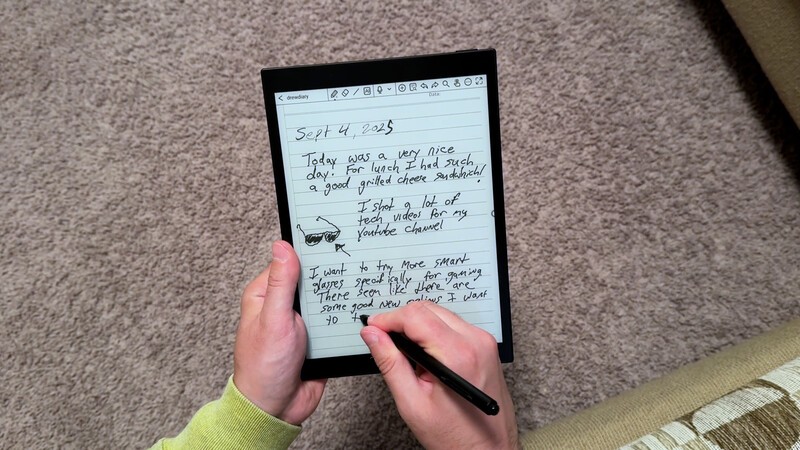 drewdiary
Date
Sept 4, 2025
Today was a very nice
day. For lunch I had such
a good grilled cheese sandwhich!
I shot a lot of
tech videos for my
youtube channel
I want to try more smart
glasses specifically for gaming
There seem like there are
some good new options I want
to t